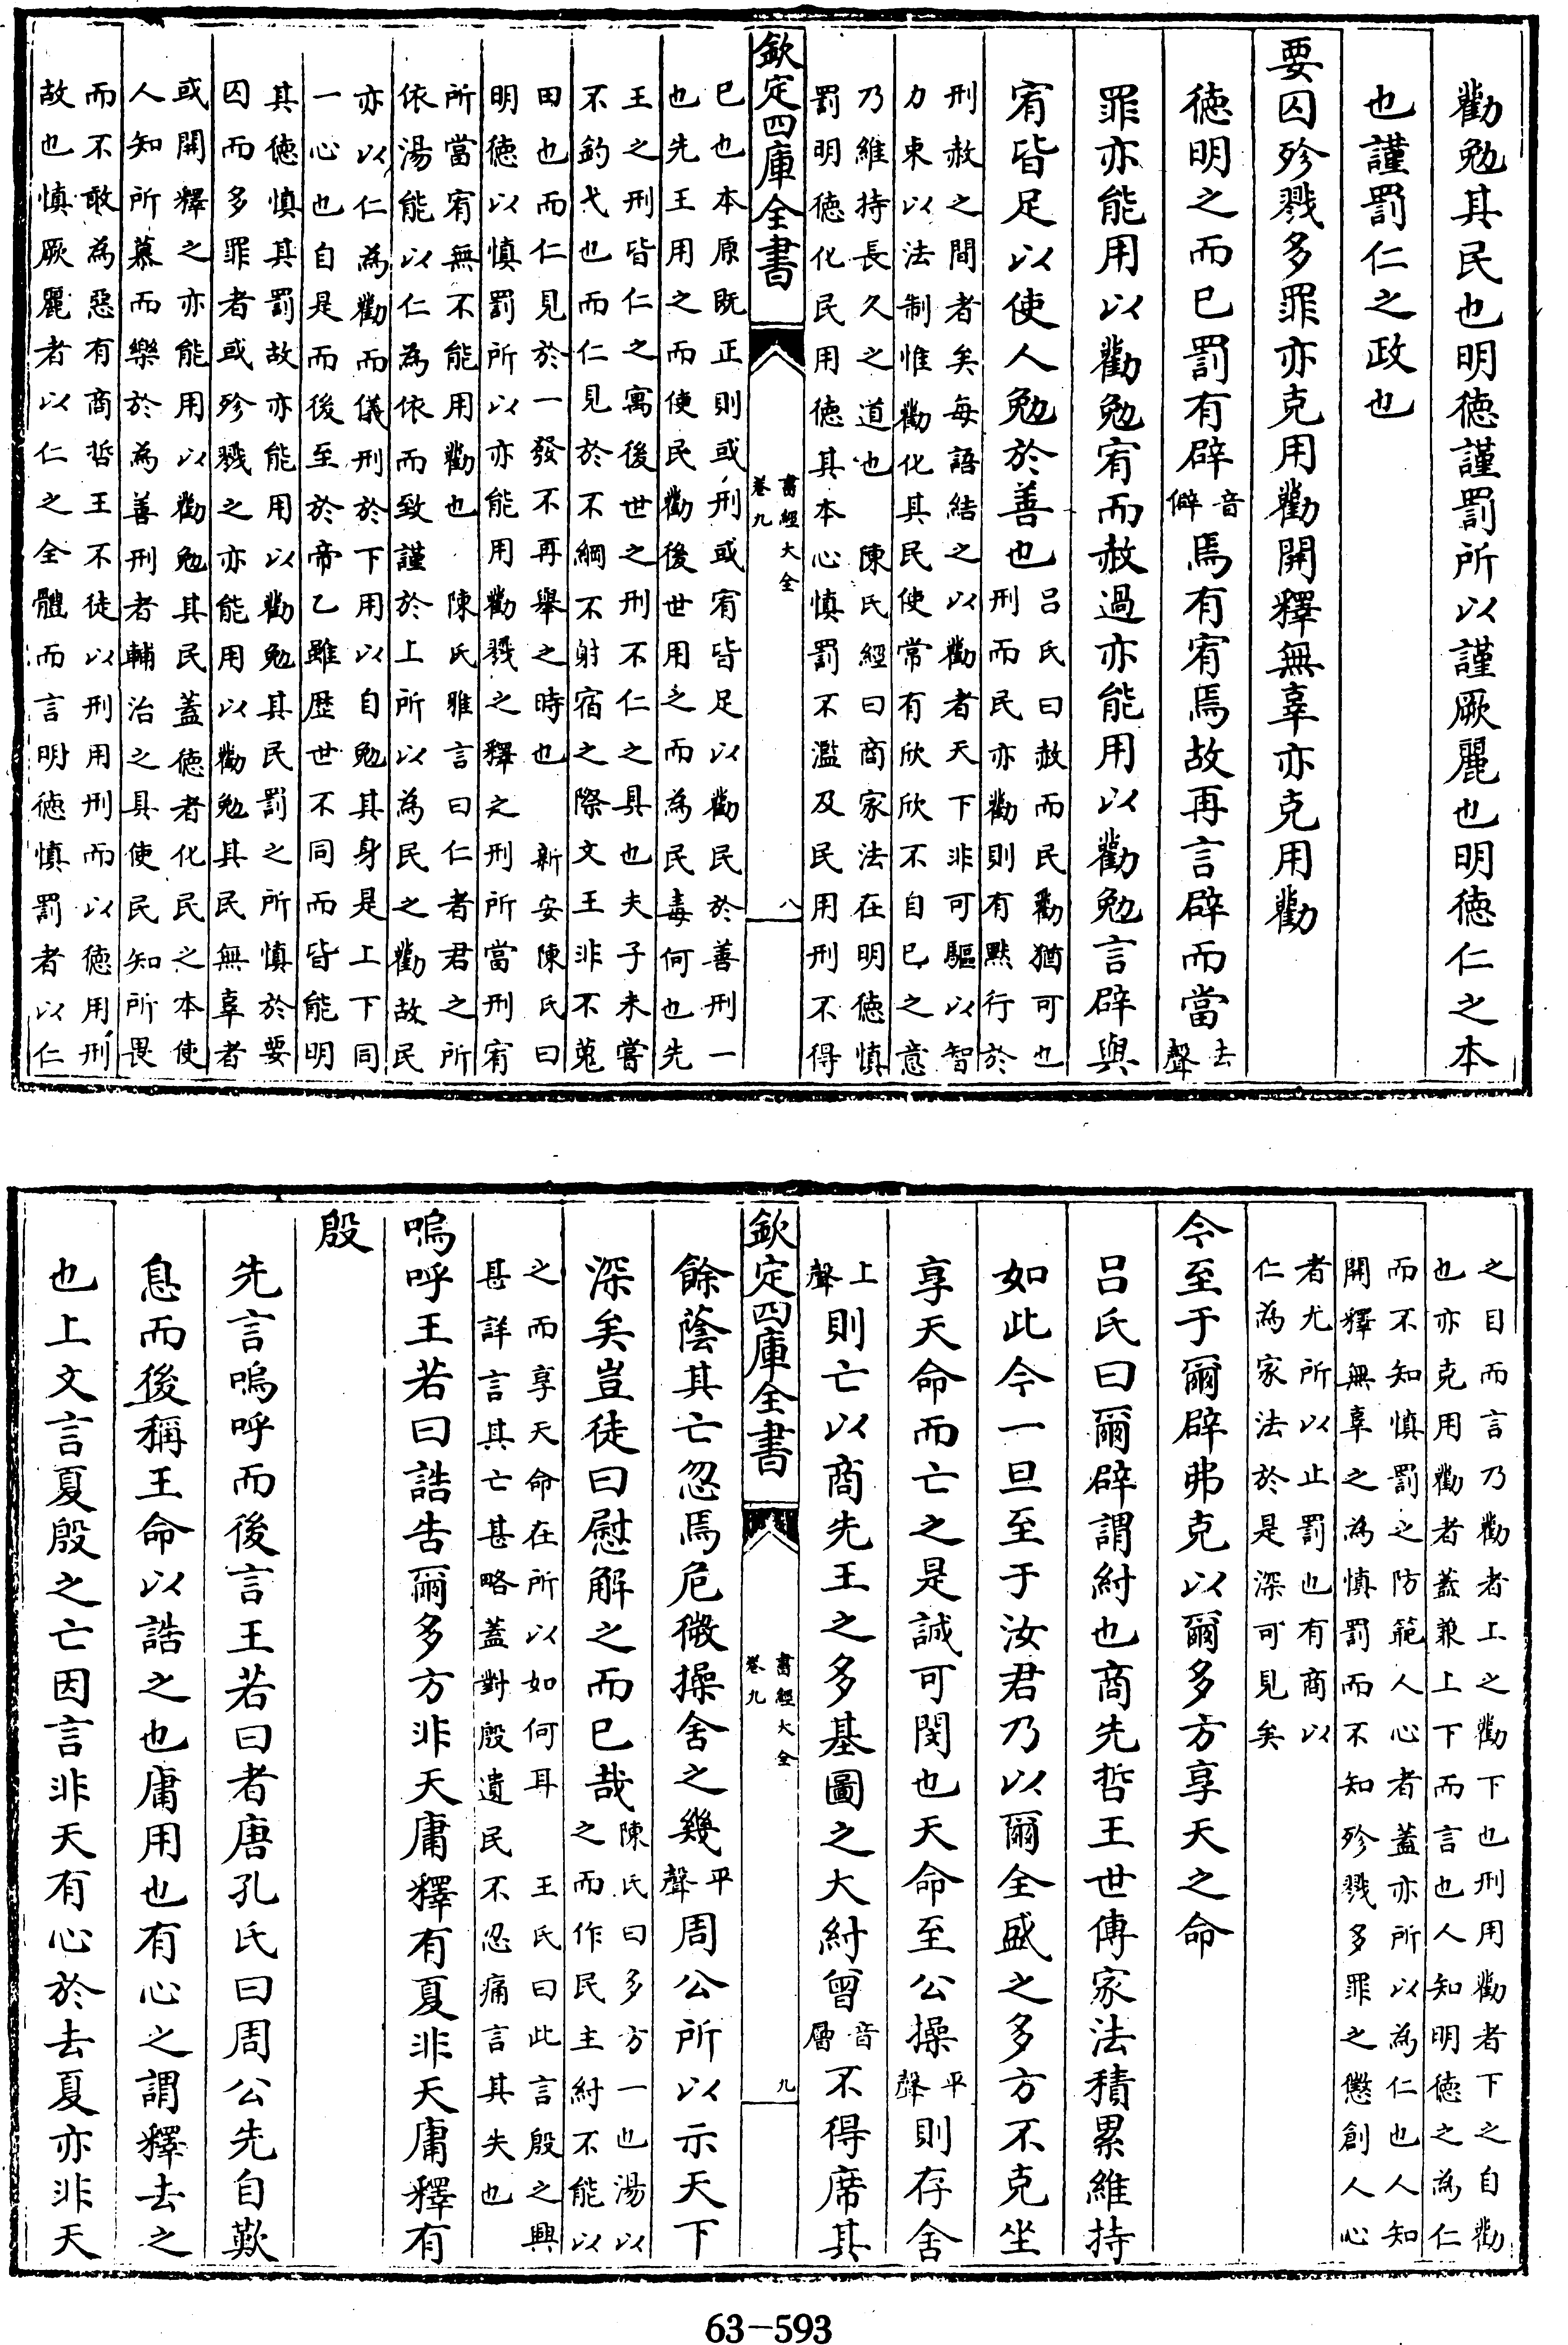 勸勉其民也明徳謹罰所以謹厥麗也明徳仁之本
也謹罰仁之政也
要囚殄戮多罪亦克用勸開釋無辜亦克用勸
徳明之而已罰有辟音僻焉有宥焉故再言辟而當去聲
罪亦能用以勸勉宥而赦過亦能用以勸勉言辟與
宥皆足以使人勉於善也呂氏曰赦而民勸猶可也
刑而民亦勸則有黙行於
刑赦之間者矣每語結之以勸者天下非可驅以智
力束以法制惟勸化其民使常有欣欣不自已之意
乃維持長久之道也 陳氏經曰商家法在明徳慎
罰明徳化民用徳其本心慎罰不濫及民用刑不得
欽定四庫全書 書經大全 卷九 八
已也本原既正則或刑或宥皆足以勸民於善刑一
也先王用之而使民勸後世用之而為民毒何也先
王之刑皆仁之寓後世之刑不仁之具也夫子未嘗
不釣弋也而仁見於不綱不射宿之際文王非不蒐
田也而仁見於一發不再舉之時也 新安陳氏曰
明徳以慎罰所以亦能用勸戮之釋之刑所當刑宥
所當宥無不能用勸也 陳氏雅言曰仁者君之所
依湯能以仁為依而致謹於上所以為民之勸故民
亦以仁為勸而儀刑於下用以自勉其身是上下同
一心也自是而後至於帝乙雖歴世不同而皆能明
其徳慎其罰故亦能用以勸勉其民罰之所慎於要
囚而多罪者或殄戮之亦能用以勸勉其民無辜者
或開釋之亦能用以勸勉其民蓋徳者化民之本使
人知所慕而樂於為善刑者輔治之具使民知所畏
而不敢為惡有商哲王不徒以刑用刑而以徳用刑
故也慎厥麗者以仁之全體而言明徳慎罰者以仁
之目而言乃勸者上之勸下也刑用勸者下之自勸
也亦克用勸者蓋兼上下而言也人知明徳之為仁
而不知慎罰之防範人心者蓋亦所以為仁也人知
開釋無辜之為慎罰而不知殄戮多罪之懲創人心
者尤所以止罰也有商以
仁為家法於是深可見矣
今至于爾辟弗克以爾多方享天之命
呂氏曰爾辟謂紂也商先哲王世傳家法積累維持
如此今一旦至于汝君乃以爾全盛之多方不克坐
享天命而亡之是誠可閔也天命至公操平聲則存舍
上聲則亡以商先王之多基圖之大紂曾音層不得席其
欽定四庫全書 書經大全 卷九 九
餘蔭其亡忽焉危微操舍之幾平聲周公所以示天下
深矣豈徒曰慰解之而已哉陳氏曰多方一也湯以
之而作民主紂不能以
之而享天命在所以如何耳 王氏曰此言殷之興
甚詳言其亡甚略蓋對殷遺民不忍痛言其失也
嗚呼王若曰誥告爾多方非天庸釋有夏非天庸釋有
殷
先言嗚呼而後言王若曰者唐孔氏曰周公先自歎
息而後稱王命以誥之也庸用也有心之謂釋去之
也上文言夏殷之亡因言非天有心於去夏亦非天
63-593